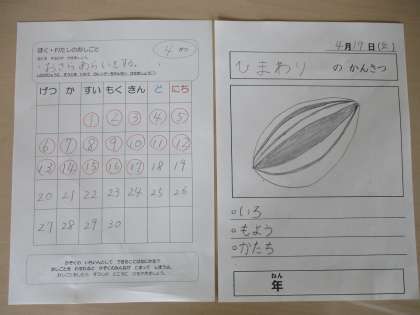 ぼく・わたしのおしごと
4 がつ
おさらあらいをする。
げつ か すい もく きん ど にち
1 2 3 4 5
6 7 8 9 10 11 12
13 14 15 16 17 18 19
20 21 22 23 24 25 26
27 28 29 30
4月17日(金)
ひまわり の かんさつ
○いろ
○もよう
○かたち
ねん
年